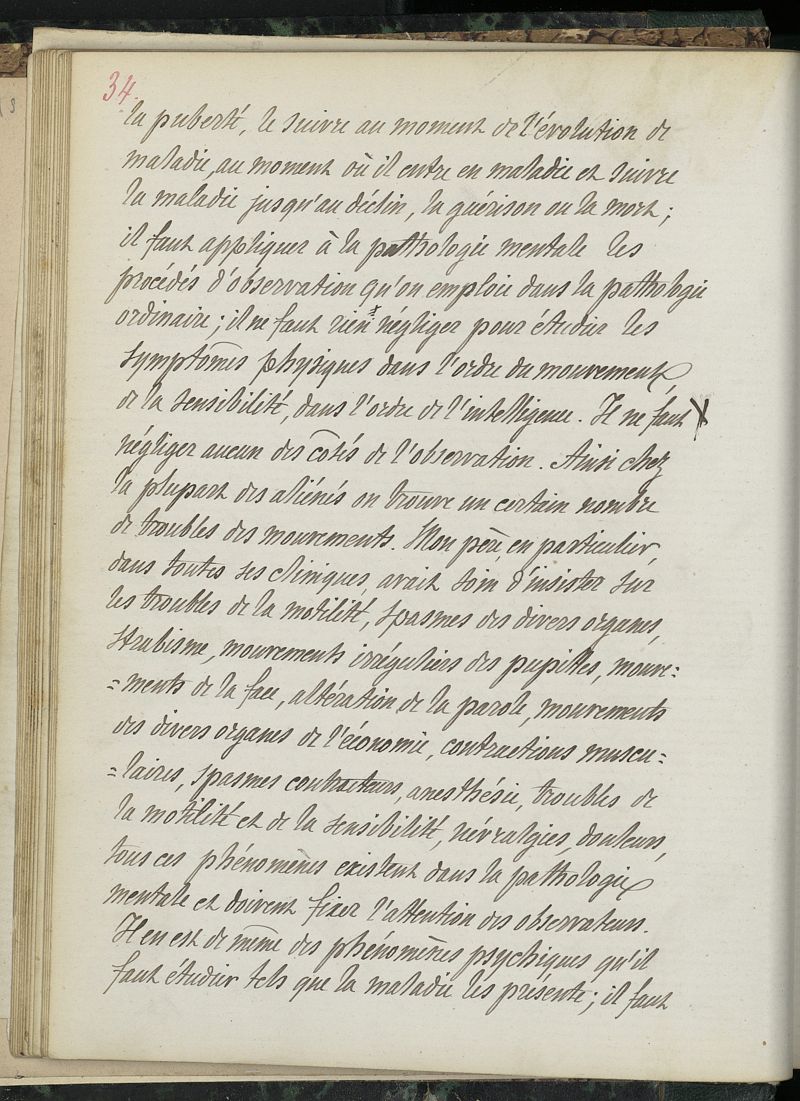 34
la puberté, le suivre au moment de l'évolution de
maladie, au moment où il entre en maladie et suivre
la maladie jusqu'au déclin, la guérison ou la mort ;
il faut appliquer à la pathologie mentale les
procédés d'observation qu'on emploie dans la pathologie
ordinaire ; il ne faut rien négliger pour étudier les
symptômes physiques dans l'ordre du mouvement,
de la sensibilité, dans l'ordre de l'intelligence. Il ne faut
négliger aucun des côtés de l'observation. Ainsi chez
la plupart des aliénés on trouve un certain nombre
de troubles des mouvements. Mon père, en particulier,
dans toutes ses cliniques, avait soin d'insister sur
les troubles de la motilité, spasmes des divers organes,
strabisme, mouvements irréguliers des pupilles, mouve=
=ments de la face, altération de la parole, mouvements
des divers organes de l'économie, contractions muscu=
=laires, spasmes , anesthésie, troubles de
la motilité et de la sensibilité, névralgies, douleurs,
tous ces phénomènes existent dans la pathologie
mentale et doivent fixer l'attention des observateurs.
Il en est de même des phénomènes psychiques qu'il
faut étudier tels que la maladie les présente ; il faut